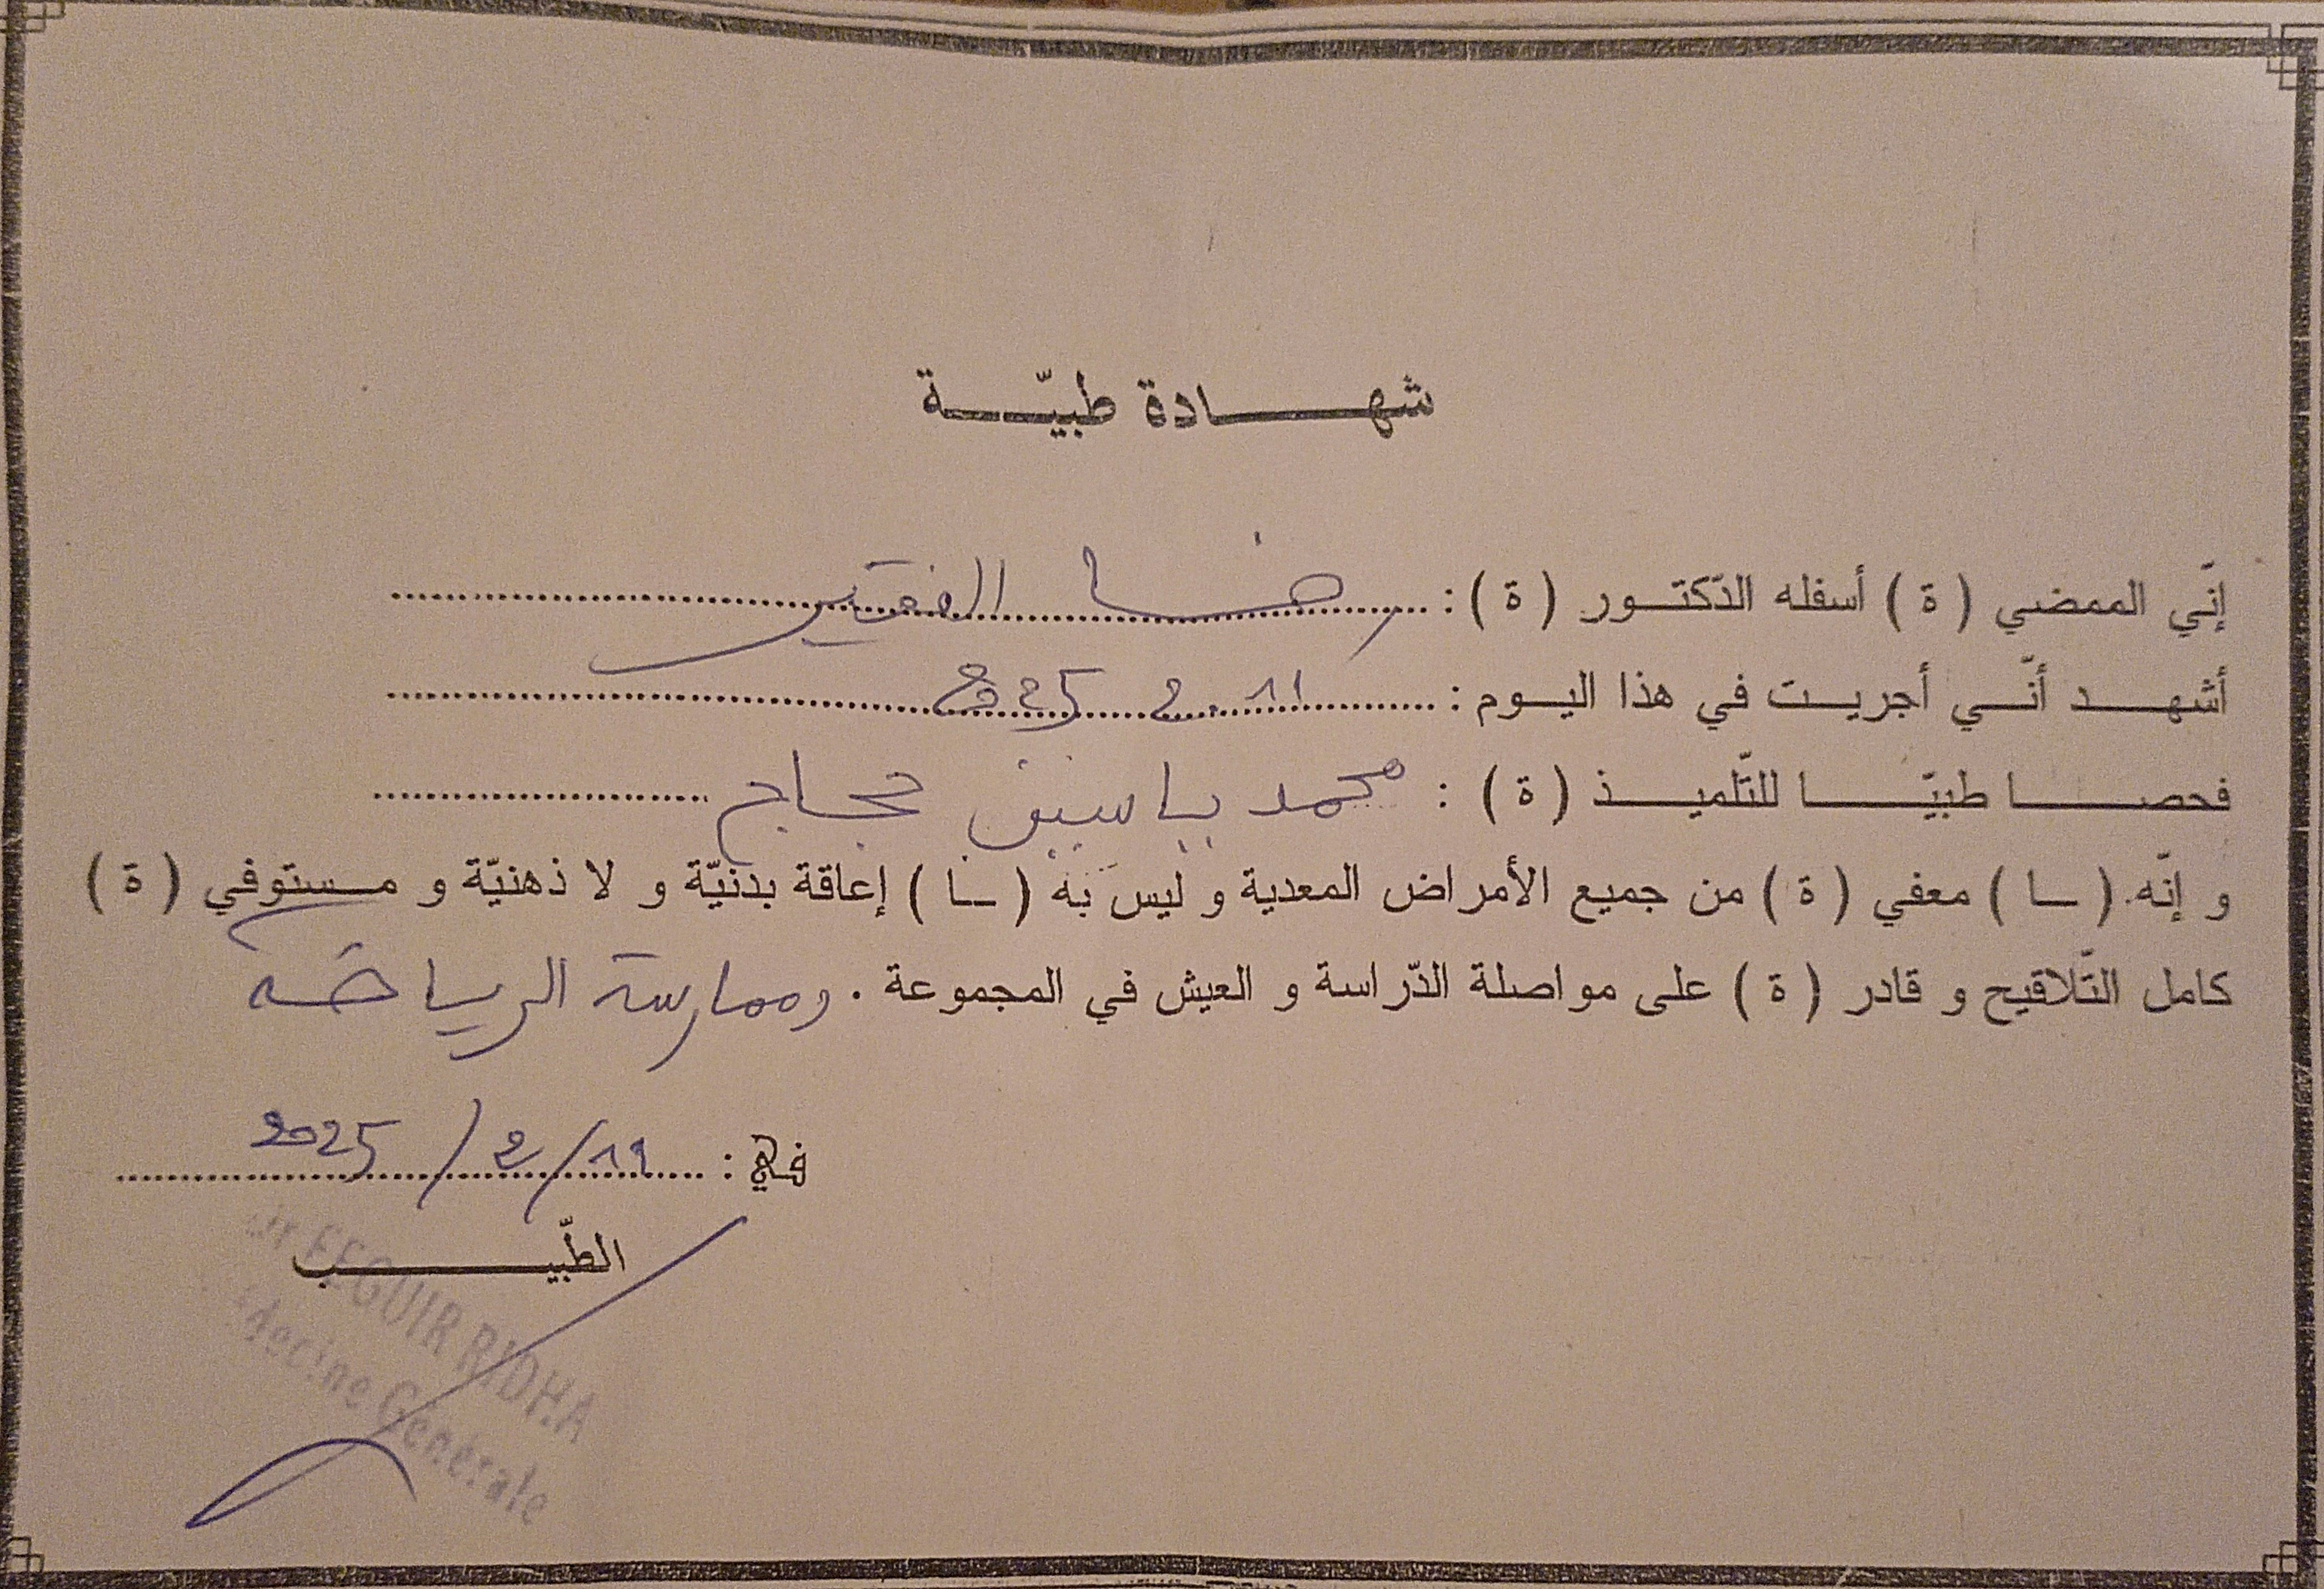 شهادة طبيّة
إنّي الممضي ( ة ) أسفله الدّكتور ( ة ) : رضا الفقير
أشهد أنّي أجريت في هذا اليوم : 2025
فحصا طبيّا للتّلميذ ( ة ) : محمد ياسين حجاج
و إنّه ( ـا ) معفي ( ة ) من جميع الأمراض المعدية و ليس به ( ـا ) إعاقة بدنيّة و لا ذهنيّة و مستوفي ( ة )
كامل التّلاقيح و قادر ( ة ) على مواصلة الدّراسة و العيش في المجموعة . وممارسة الرياضة
في : 2025
الطّبيب
FEGUIR RIDHA
Générale